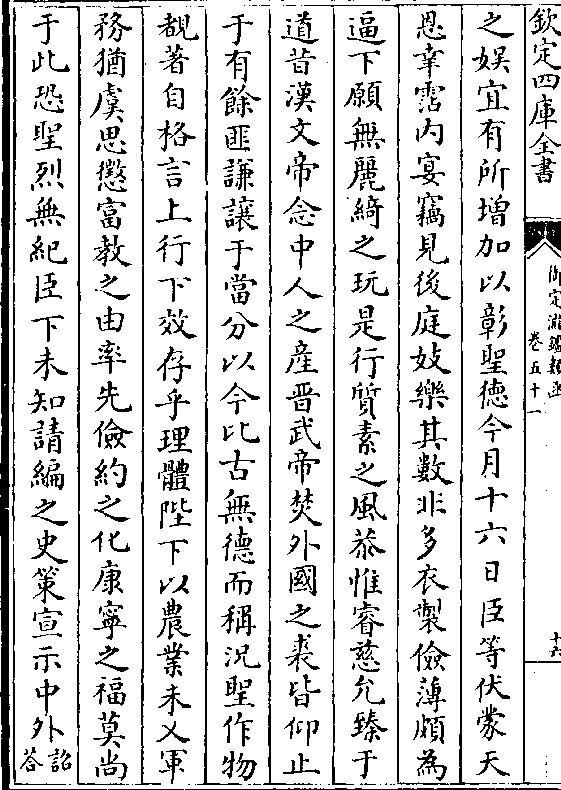 欽定四庫全書
御定淵鑑類函
卷五十一
十六
之娛宜有所增加以彰聖德今月十六日臣等伏蒙天
恩幸霑内宴竊見後庭妓樂其數非多衣製儉薄頗為
逼下願無麗綺之玩是行質素之風恭惟睿慈允臻于
道昔漢文帝念中人之產晋武帝焚外國之裘皆仰止
于有餘匪謙讓于當分以今比古無德而稱況聖作物
覩著自格言上行下效存乎理體陛下以農業未乂軍
務猶虞思懲富教之由率先儉約之化康寧之福莫尚
于此恐聖烈無紀臣下未知請編之史策宣示中外詔答